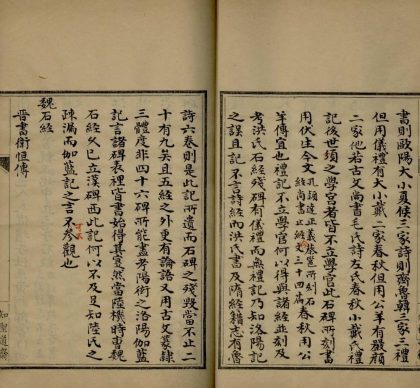 書則歐陽大小夏侯二家詩則齊魯韓三家小戴氏禮
但用儀禮有大小戴二家春秋但用公羊有嚴顏
二家他若古文尚書毛氏詩左氏春秋小戴氏禮
記後世頒之學官者皆不立學官故此石碑所刻書
用伏生今文孔穎達正義張霸所刻石經尚書止三十四篇春秋用公
羊傳宜也禮記不立學官何以得與諸經並刻及
考洪氏石經殘碑有儀禮而無禮記乃知洛陽記
之誤且記不言詩經而洪氏書及隋經籍志有魯
詩六卷則是此記所遺而石碑之殘毀當不止二
十有九矣且五經之外更有論語又用古文篆隸
三體度非四十六碑所能盡考陽衒之洛陽伽藍
記言諸碑表裡皆書始得其實然當陸機時曹魏
石經久已立漢碑西此記何以不及足知陸氏之
疎漏而伽藍記之言不可不參觀也
魏石經
晉書衛恒傳
知聖道齋